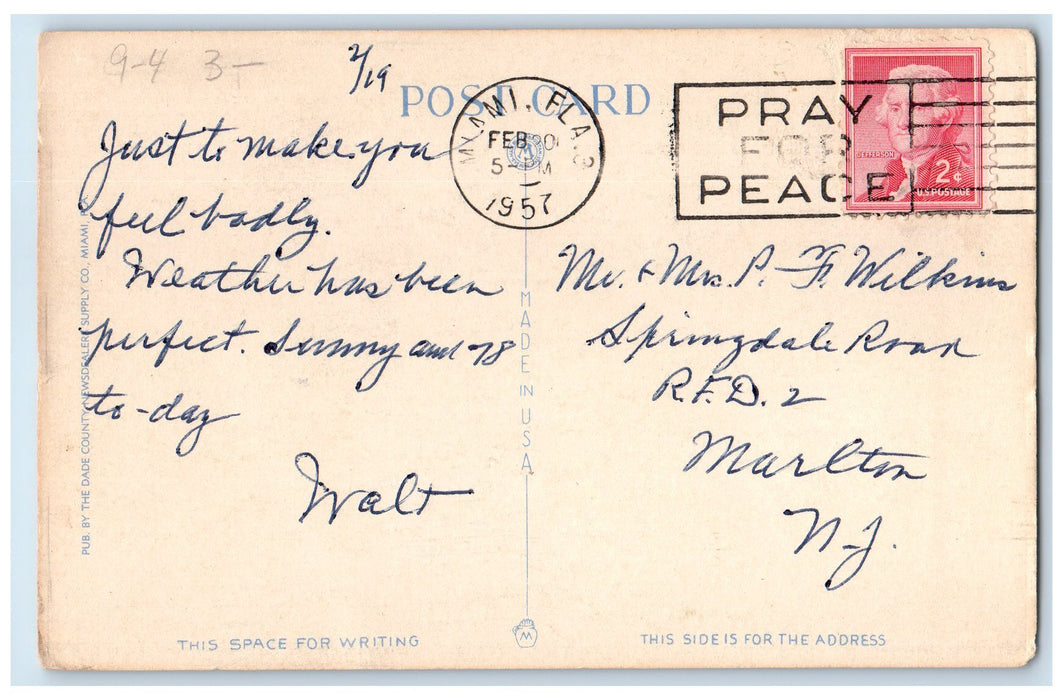 9-4 3-
2/19
POST CARD
MIAMI, FLA. 3
FEB 20
5- PM
1957
PRAY
FOR
PEACE
JEFFERSON
2¢
U.S. POSTAGE
Just to make you
feel badly.
Weather has been
perfect. Sunny and 78
to-day
Walt
Mr. & Mrs. P. F. Wilkins
Springdale Road
R.F.D. 2
Marlton
N.J.
PUB. BY THE DADE COUNTY NEWSDEALERS SUPPLY CO., MIAMI,
MADE IN USA
THIS SPACE FOR WRITING
M
THIS SIDE IS FOR THE ADDRESS